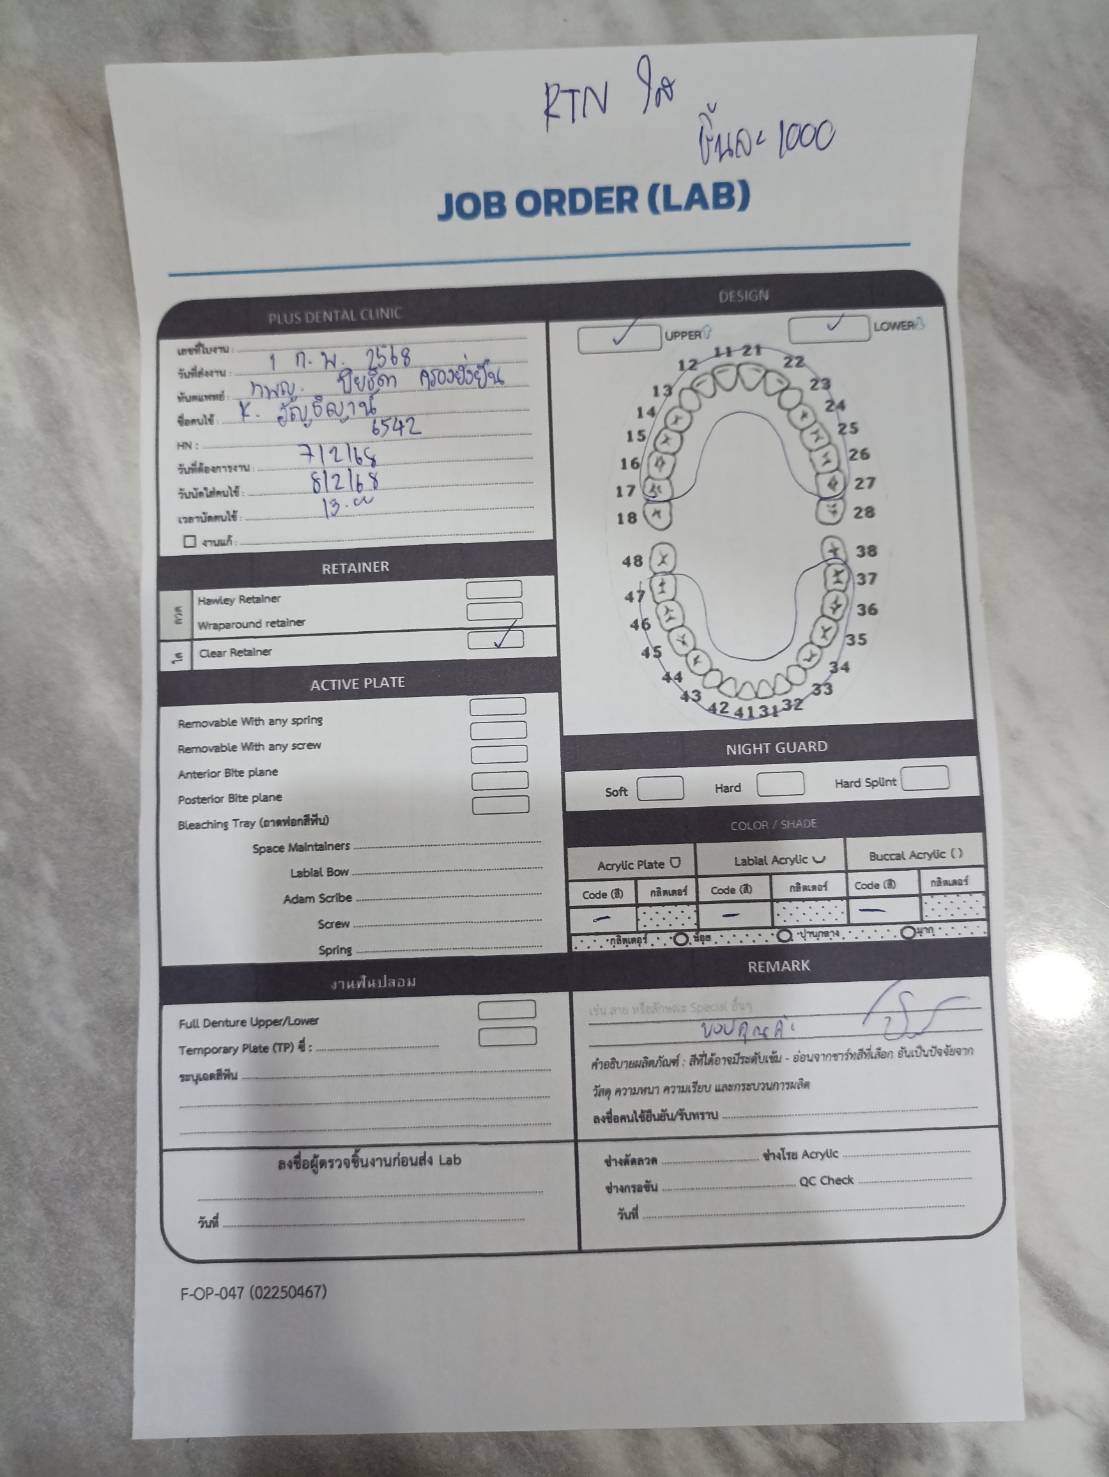 RTN ใส
ชิ้นละ 1000
JOB ORDER (LAB)
PLUS DENTAL CLINIC
เลขที่ใบงาน :
วันที่ส่งงาน : 1 ก.พ. 2568
ทันตแพทย์ : ทพญ. ปิยธิดา ครองยั่งยืน
ชื่อคนไข้ : K. ธัญธิญาน์
HN : 6542
วันที่ต้องการงาน : 7/2/68
วันนัดใส่คนไข้ : 8/2/68
เวลานัดคนไข้ : 13.00
งานแก้ :
RETAINER
ลวด
Hawley Retainer
Wraparound retainer
ใส
Clear Retainer
ACTIVE PLATE
Removable With any spring
Removable With any screw
Anterior Bite plane
Posterior Bite plane
Bleaching Tray (ถาดฟอกสีฟัน)
Space Maintainers
Labial Bow
Adam Scribe
Screw
Spring
งานฟันปลอม
Full Denture Upper/Lower
Temporary Plate (TP) ซี่ :
ระบุเฉดสีฟัน
ลงชื่อผู้ตรวจชิ้นงานก่อนส่ง Lab
วันที่
DESIGN
UPPER
LOWER
11 21
12 22
13 23
14 24
15 25
16 26
17 27
18 28
48 38
47 37
46 36
45 35
44 34
43 33
42 41 31 32
NIGHT GUARD
Soft Hard Hard Splint
COLOR / SHADE
Acrylic Plate Labial Acrylic Buccal Acrylic ( )
Code (สี) กลิตเตอร์ Code (สี) กลิตเตอร์ Code (สี) กลิตเตอร์
กลิตเตอร์ น้อย ปานกลาง มาก
REMARK
เช่น ลาย หรือลักษณะ Special อื่นๆ
ขอบคุณค่ะ
คำอธิบายผลิตภัณฑ์ : สีที่ได้อาจมีระดับเข้ม - อ่อนจากชาร์ทสีที่เลือก อันเป็นปัจจัยจาก
วัสดุ ความหนา ความเรียบ และกระบวนการผลิต
ลงชื่อคนไข้ยืนยัน/รับทราบ
ช่างดัดลวด ช่างโรย Acrylic
ช่างกรอขัน QC Check
วันที่
F-OP-047 (02250467)